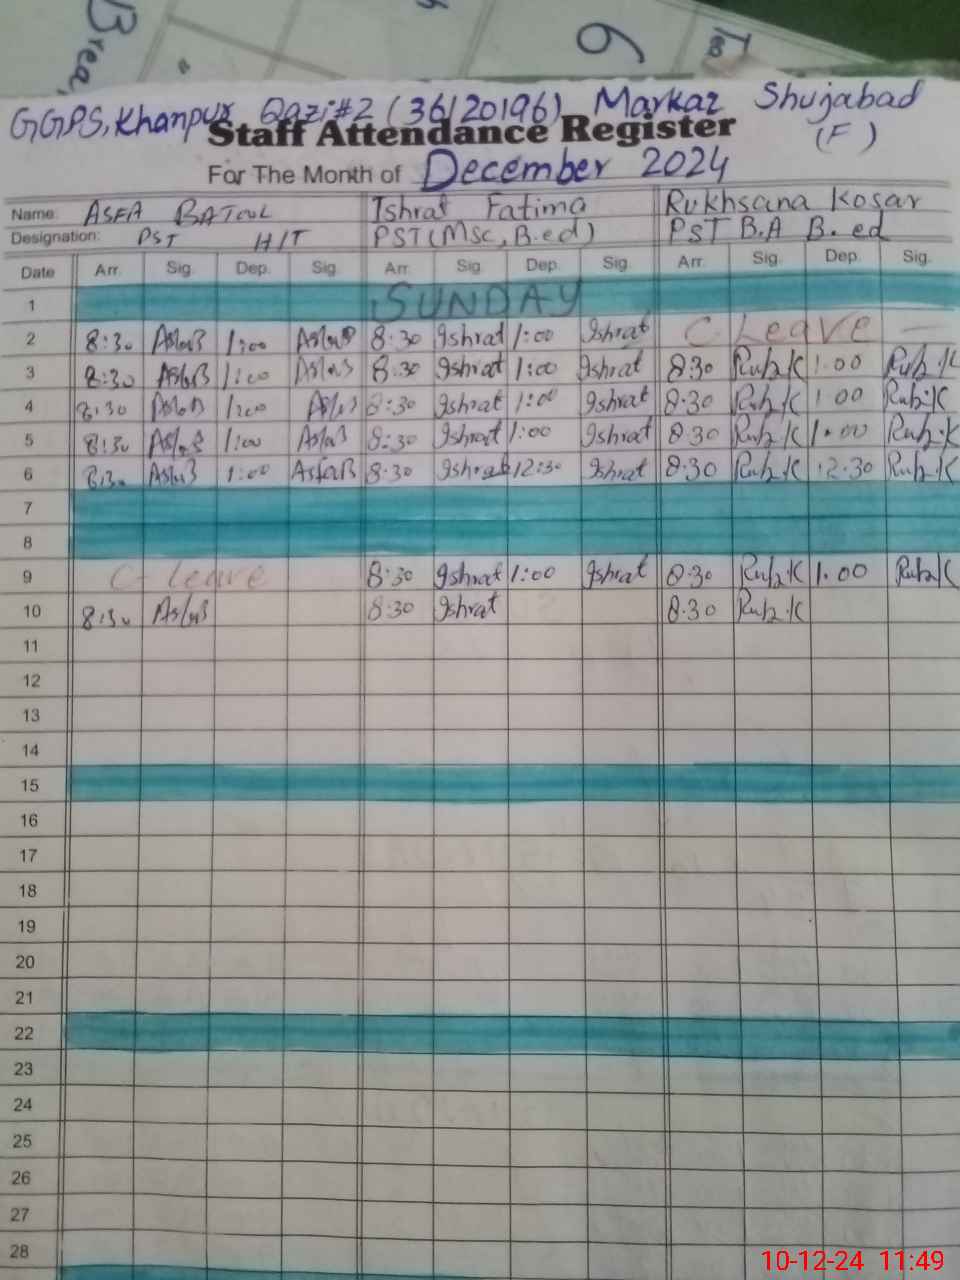 Brea
6
GGPS, Khanpur Qazi #2 (36120196) Markaz Shujabad
(F)
Staff Attendance Register
For The Month of December 2024
Name: ASFA BATOOL Ishrat Fatima Rukhsana Kosar
Designation: PST H/T PST (Msc, B.ed) PST B.A B.ed
Date Arr. Sig. Dep. Sig. Arr. Sig. Dep. Sig. Arr. Sig. Dep. Sig.
1 SUNDAY
2 8:30 AsfaB 1:00 AsfaB 8:30 Ishrat 1:00 Ishrat C-Leave
3 8:30 AsfaB 1:00 AsfaB 8:30 Ishrat 1:00 Ishrat 8:30 Rub.K 1.00 Rub.K
4 8:30 AsfaB 1:00 AsfaB 8:30 Ishrat 1:00 Ishrat 8.30 Rub.K 1 00 Rub.K
5 8:30 AsfaB 1:00 AsfaB 8:30 Ishrat 1:00 Ishrat 8.30 Rub.K 1.00 Rub.K
6 8:30 AsfaB 1:00 AsfaB 8.30 Ishrat 12:30 Ishrat 8:30 Rub.K 12.30 Rub.K
7
8
9 C-Leave 8:30 Ishrat 1:00 Ishrat 8.30 Rub.K 1.00 Rub.K
10 8:30 AsfaB 8:30 Ishrat 8.30 Rub.K
11
12
13
14
15
16
17
18
19
20
21
22
23
24
25
26
27
28
10-12-24 11:49